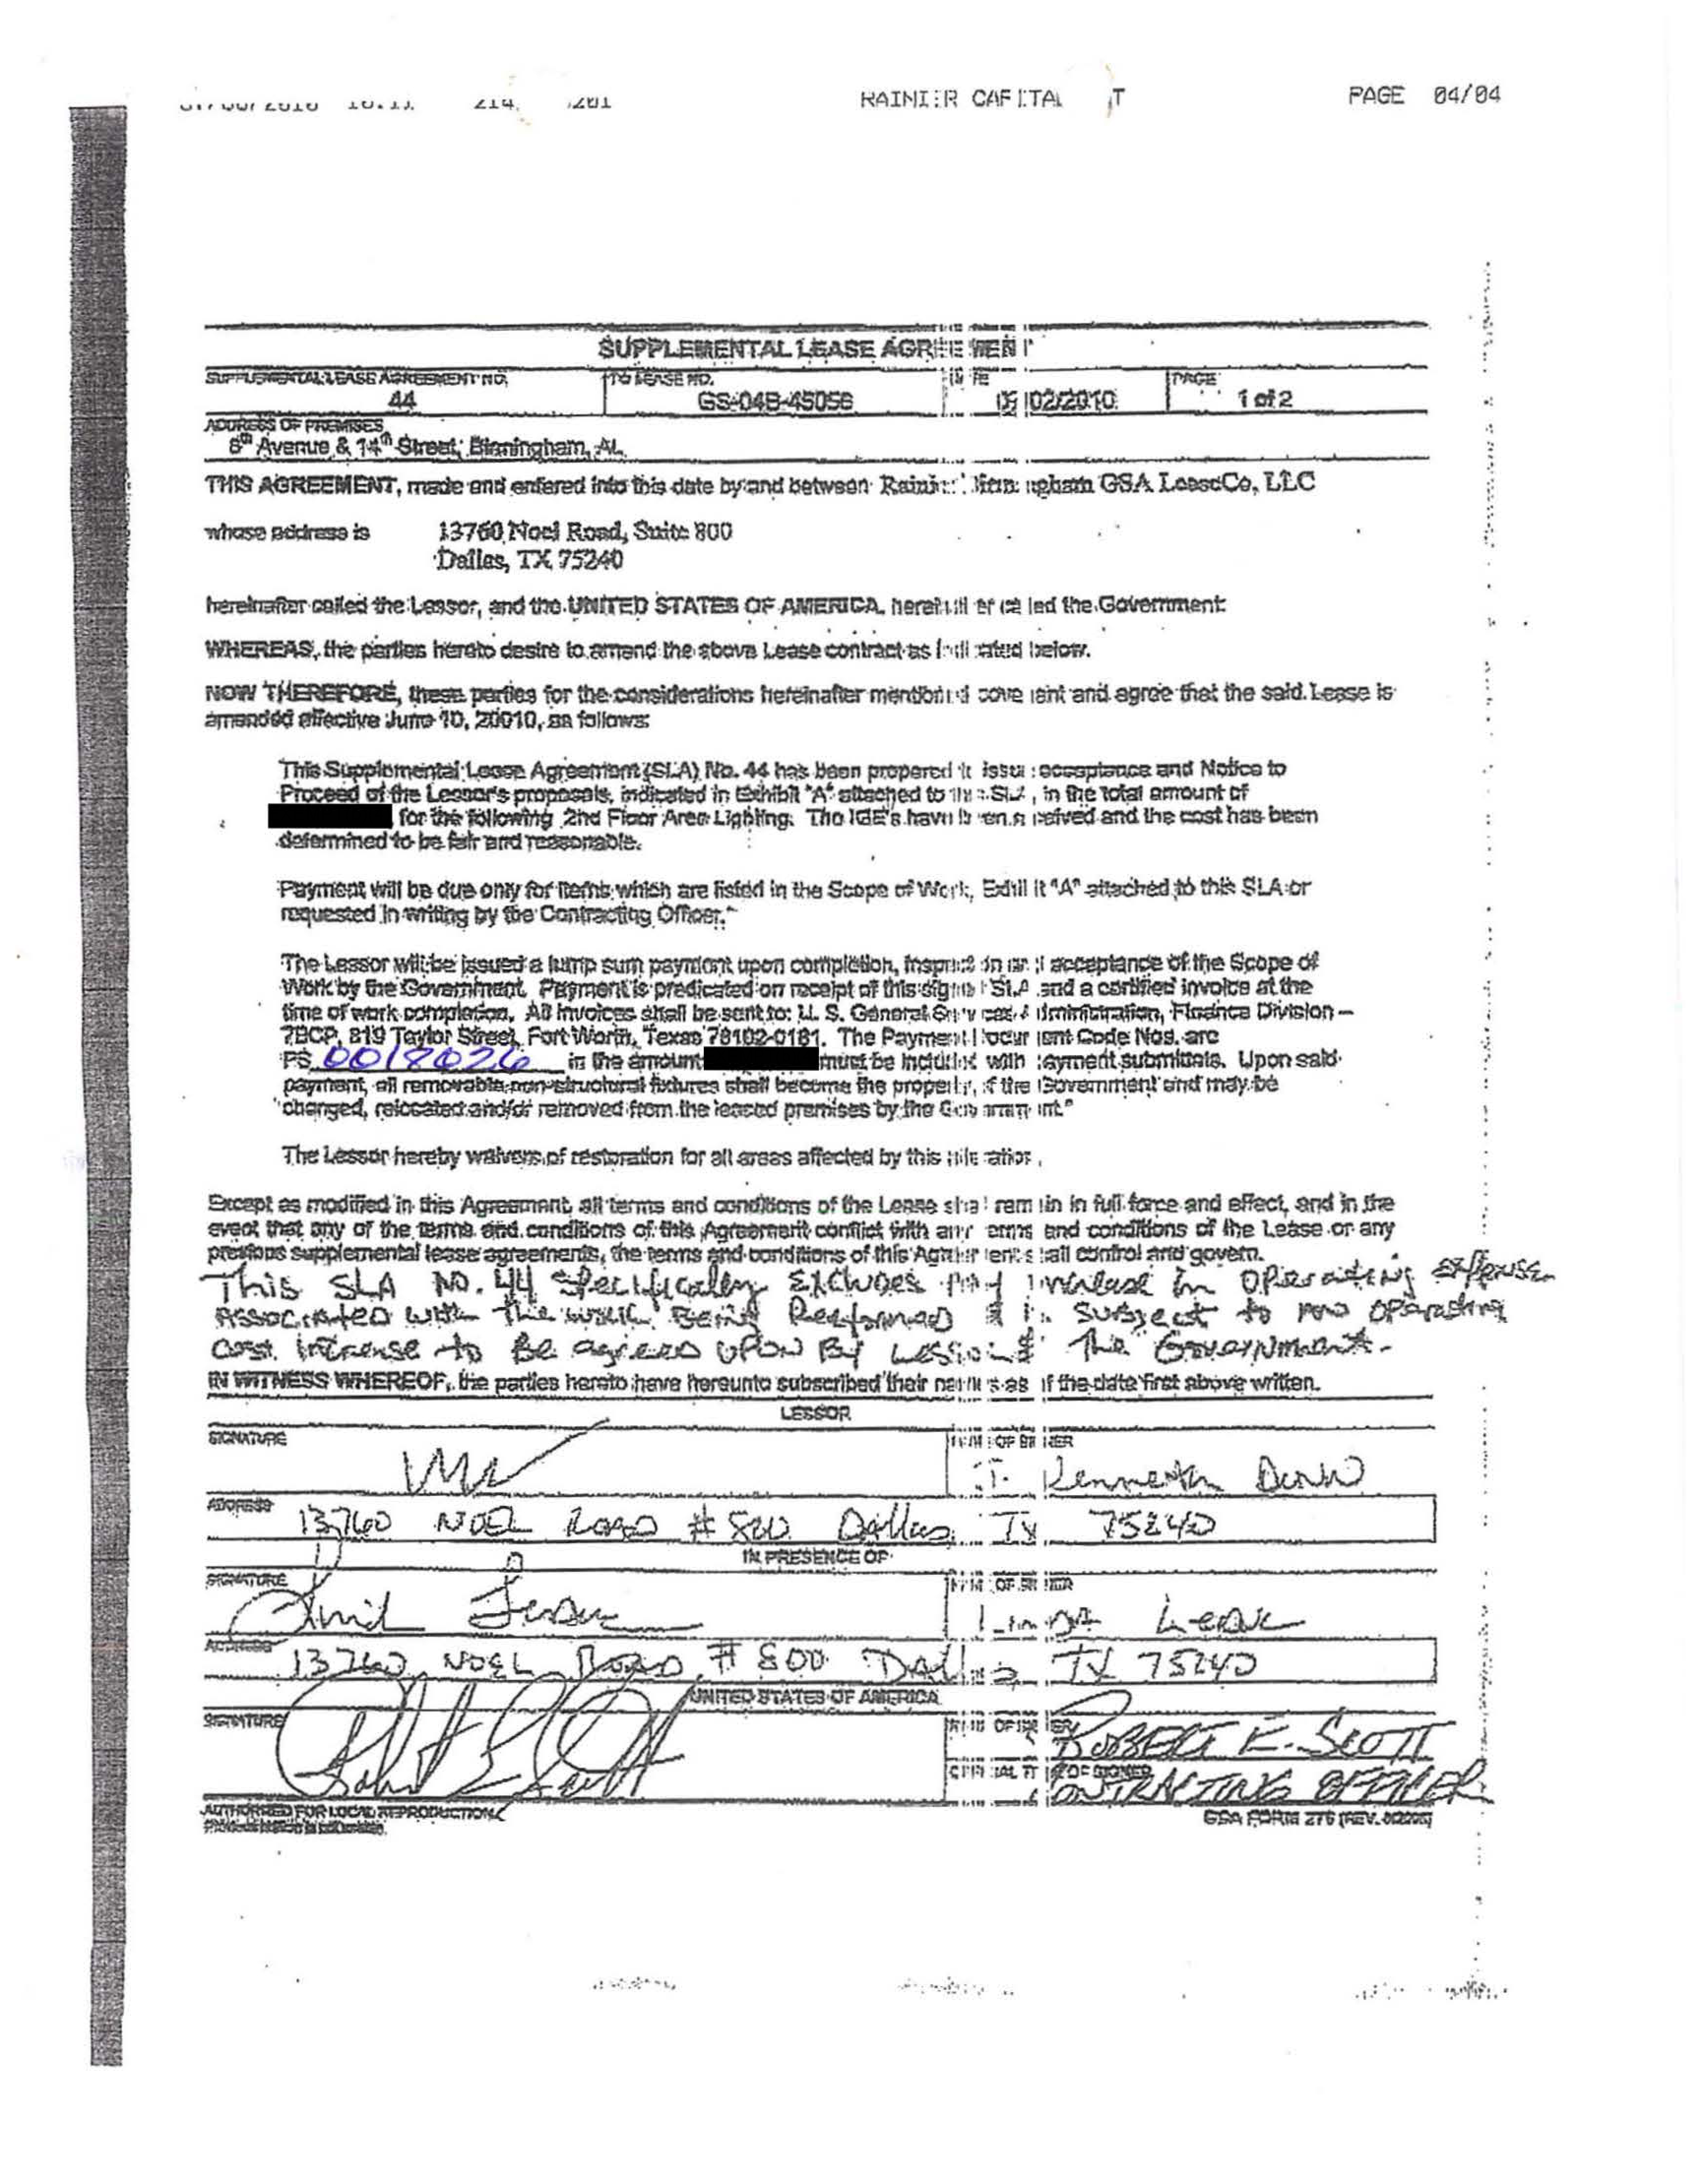 RAINIER CAPITAL PAGE 04/04
SUPPLEMENTAL LEASE AGREEMENT
SUPPLEMENTAL LEASE AGREEMENT NO. TO LEASE NO. DATE PAGE
44 GS-04B-45056 02/2010 1 of 2
ADDRESS OF PREMISES
8th Avenue & 14th Street, Birmingham, AL
THIS AGREEMENT, made and entered into this date by and between Rainier Birmingham GSA LeaseCo, LLC
whose address is 13760 Noel Road, Suite 800
Dallas, TX 75240
hereinafter called the Lessor, and the UNITED STATES OF AMERICA, hereinafter called the Government:
WHEREAS, the parties hereto desire to amend the above Lease contract as indicated below.
NOW THEREFORE, these parties for the considerations hereinafter mentioned covenant and agree that the said Lease is
amended effective June 10, 20010, as follows:
This Supplemental Lease Agreement (SLA) No. 44 has been prepared to issue acceptance and Notice to
Proceed of the Lessor's proposals, indicated in Exhibit "A" attached to this SLA, in the total amount of
for the following 2nd Floor Area Lighting. The IGE's have been received and the cost has been
determined to be fair and reasonable.
Payment will be due only for items which are listed in the Scope of Work, Exhibit "A" attached to this SLA or
requested in writing by the Contracting Officer."
The Lessor will be issued a lump sum payment upon completion, inspection and acceptance of the Scope of
Work by the Government. Payment is predicated on receipt of this signed SLA and a certified invoice at the
time of work completion. All invoices shall be sent to: U. S. General Services Administration, Finance Division –
7BCP, 819 Taylor Street, Fort Worth, Texas 76102-0181. The Payment Document Code Nos. are
PS 0018026 in the amount must be included with payment submittals. Upon said
payment, all removable non-structural fixtures shall become the property of the Government and may be
changed, relocated and/or removed from the leased premises by the Government."
The Lessor hereby waivers of restoration for all areas affected by this alteration.
Except as modified in this Agreement, all terms and conditions of the Lease shall remain in full force and effect, and in the
event that any of the terms and conditions of this Agreement conflict with any terms and conditions of the Lease or any
previous supplemental lease agreements, the terms and conditions of this Agreement shall control and govern.
This SLA NO. 44 Specifically Excludes any increase in Operating Expense
Associated with the work Being Performed & is subject to an operating
cost increase to Be agreed upon By Lessor & the Government.
IN WITNESS WHEREOF, the parties hereto have hereunto subscribed their names as of the date first above written.
LESSOR
SIGNATURE NAME OF SIGNER
J. Kenneth Dunn
ADDRESS 13760 NOEL ROAD # 800 Dallas, TX 75240
IN PRESENCE OF
SIGNATURE NAME OF SIGNER
ADDRESS 13760 NOEL ROAD # 800 Dallas TX 75240
UNITED STATES OF AMERICA
SIGNATURE NAME OF SIGNER ROBERT E. SCOTT
OFFICIAL TITLE OF SIGNER CONTRACTING OFFICER
AUTHORIZED FOR LOCAL REPRODUCTION GSA FORM 276